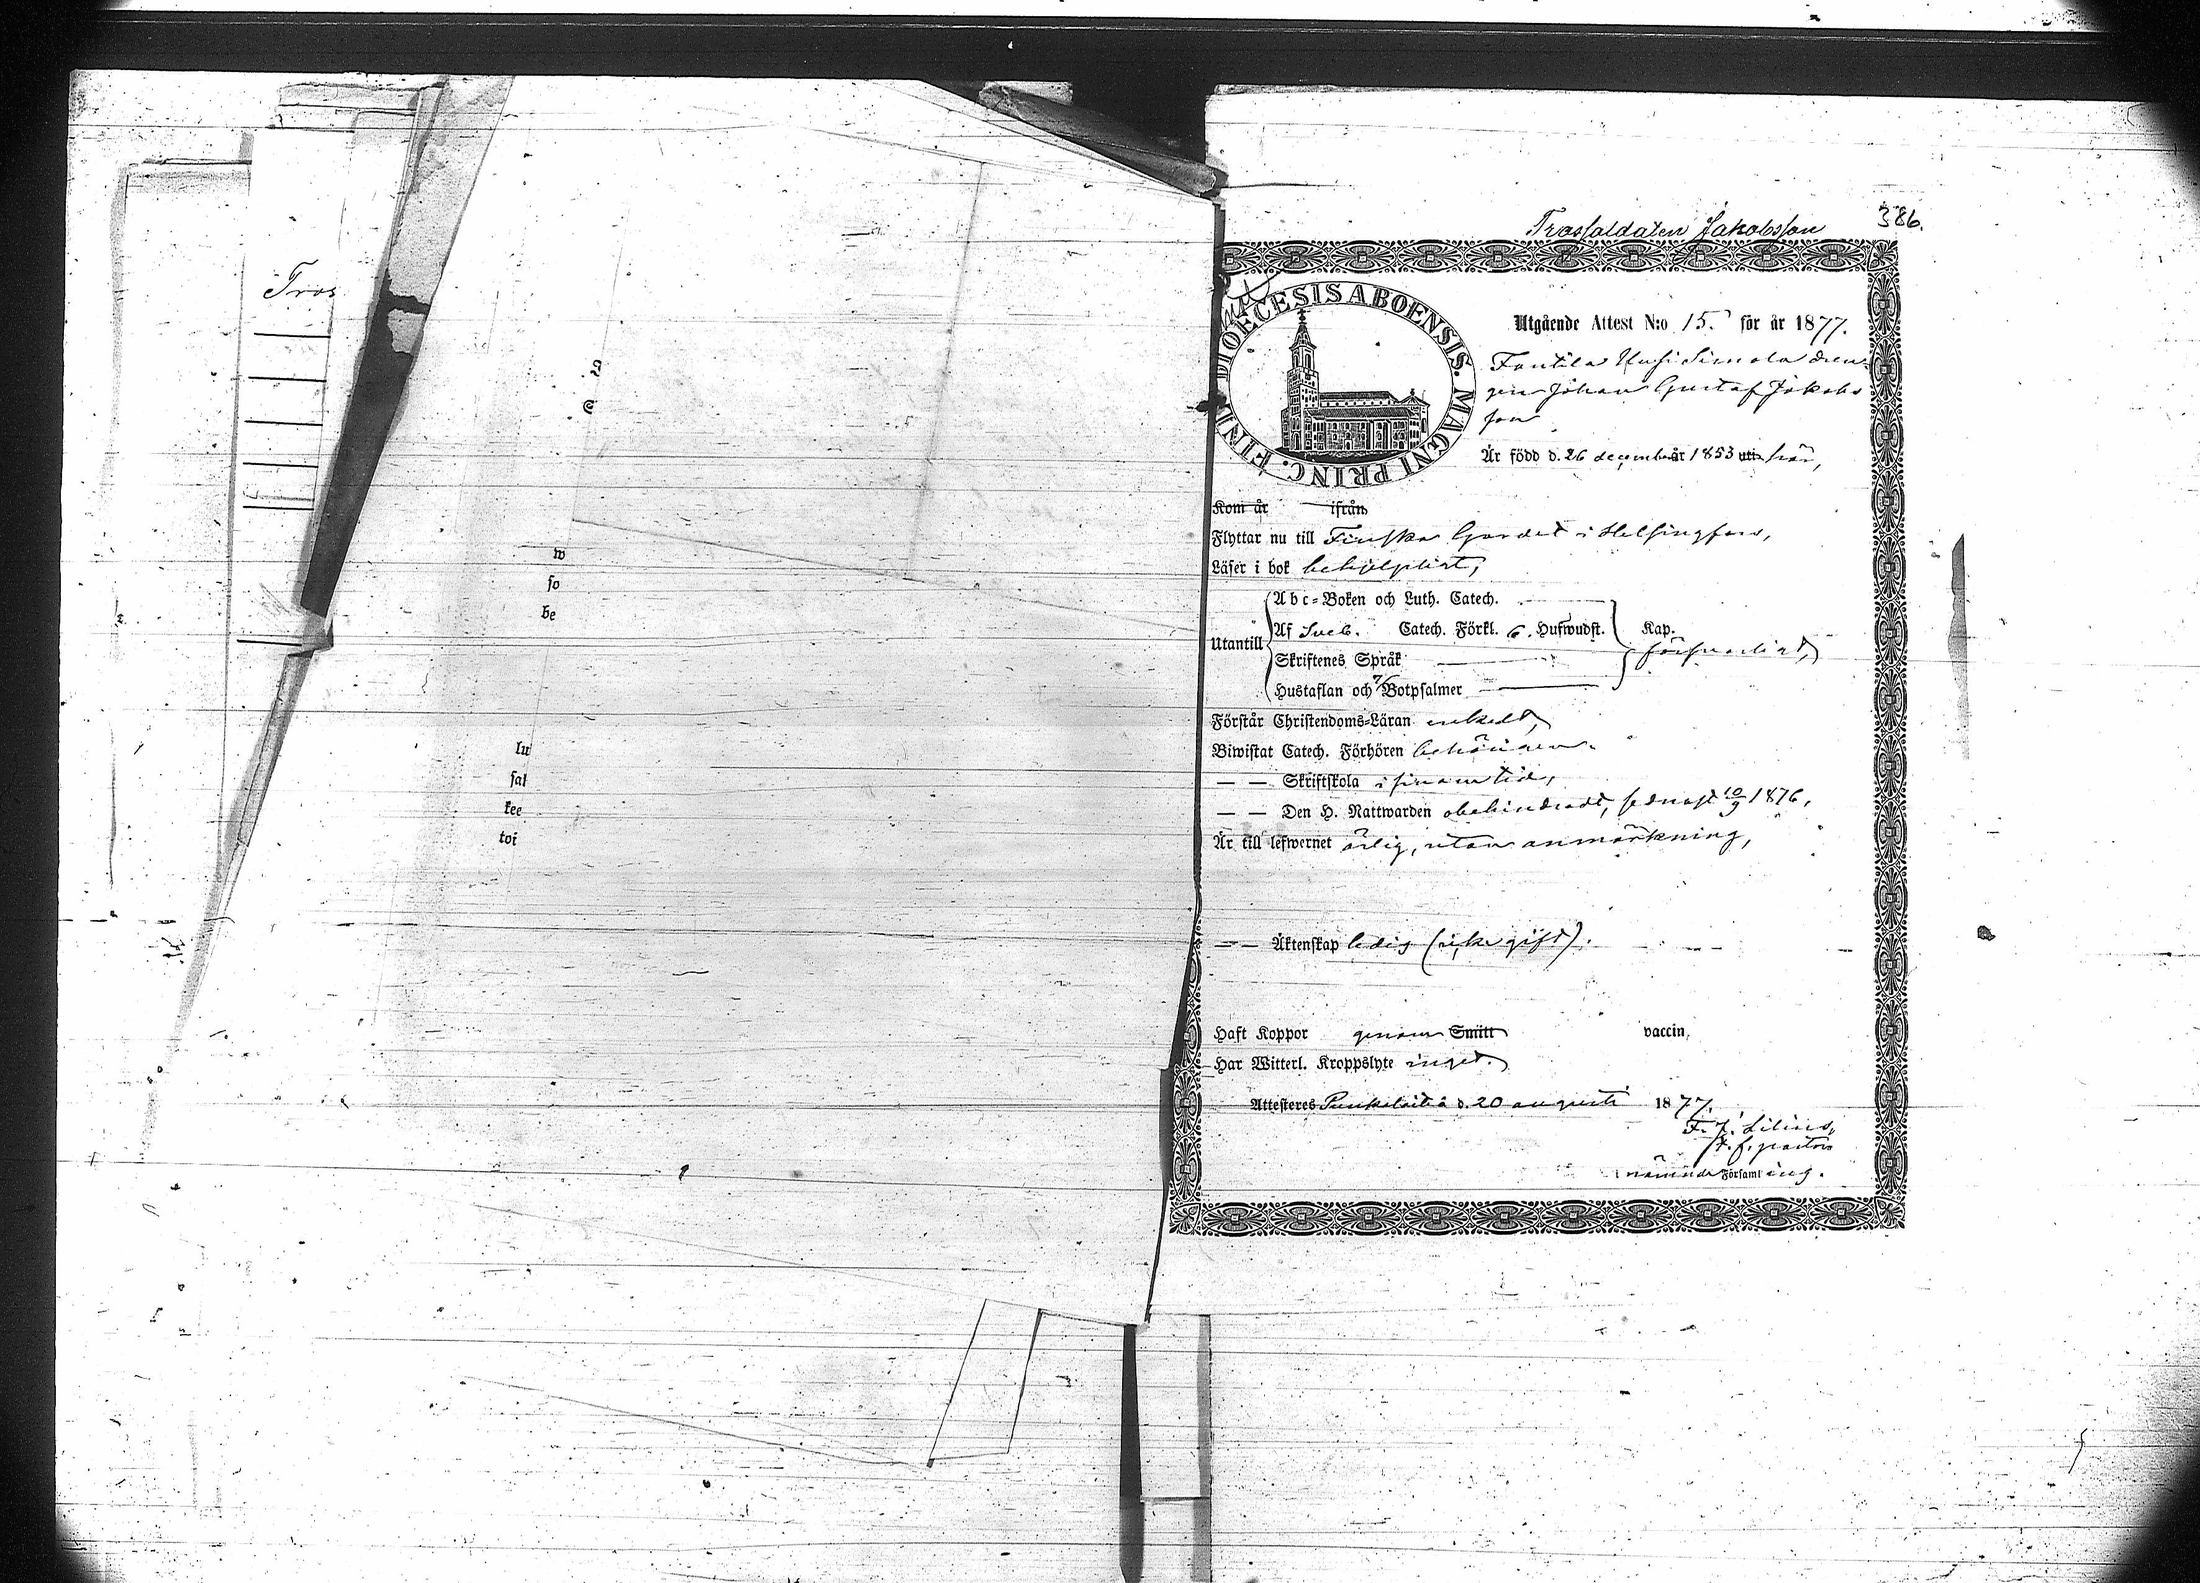 Trossoldaten Jakobsson 386.
Tros
DIOECESIS ABOENSIS. MAGNI PRINC. FINL.
Utgående Attest N:o 15. för år 1877.
Fontila Uusi Simola dren-
gen Johan Gustaf Jakobs
son
Är född d. 26 december år 1853 uti här,
Kom år ifrån
Flyttar nu till Finska Gardet i Helsingfors,
Läser i bok behjelpligt,
Utantill
Abc-Boken och Luth. Catech.
Af Sveb. Catech. Förkl. 6. Hufwudst. Kap.
försvarligt,
Skriftenes Språk
Hustaflan och 7 Botpsalmer
Förstår Christendoms-Läran enkelt,
Biwistat Catech. Förhören behörigen.
— — Skriftskola i sinom tid,
— — Den H. Nattwarden obehindradt, senast 10/9 1876,
Är till lefwernet ärlig, utan anmärkning,
— — Äktenskap ledig (icke gift).
Haft Koppor genom Smitt vaccin.
Har Witterl. Kroppslyte inget.
Attesteres Punkalaitio d. 20 augusti 1877.
F. J. Lilius,
v. f. pastor
i nämnde Församl ing.
w
so
be
lu
sal
kee
toi